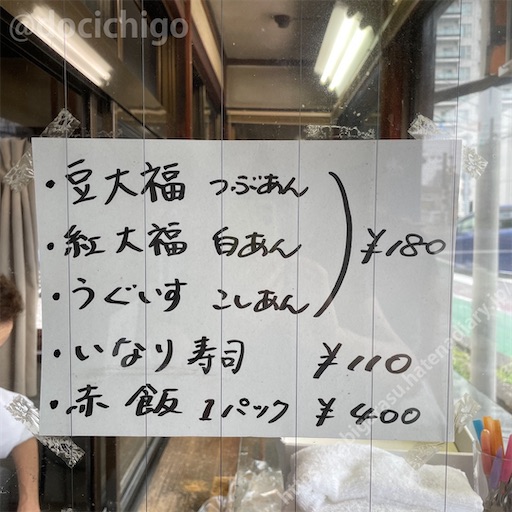 @docichigo
・豆大福 つぶあん
・紅大福 白あん ¥180
・うぐいす こしあん
・いなり寿司 ¥110
・赤飯 1パック ¥400